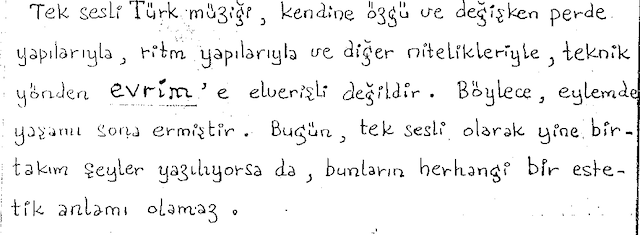 Tek sesli Türk müziği, kendine özgü ve değişken perde
yapılarıyla, ritm yapılarıyla ve diğer nitelikleriyle, teknik
yönden evrim'e elverişli değildir. Böylece, eylemde
yaşamı sona ermiştir. Bugün, tek sesli olarak yine bir-
takım şeyler yazılıyorsa da, bunların herhangi bir este-
tik anlamı olamaz.